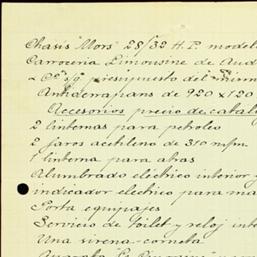 Chasis "Mors" 25/32 H.P. model
Carroceria Limousine de
presupuesto del
Antiderrapans de 920 x 120
Accesorios precio de catal
2 linternas para petroleo
2 faros acetileno de 310 m/m
1 linterna para atras
Alumbrado electrico interior y
indicador electrico para ma
Porta equipajes
Servicio de Toilet y reloj inte
Una sirena-corneta